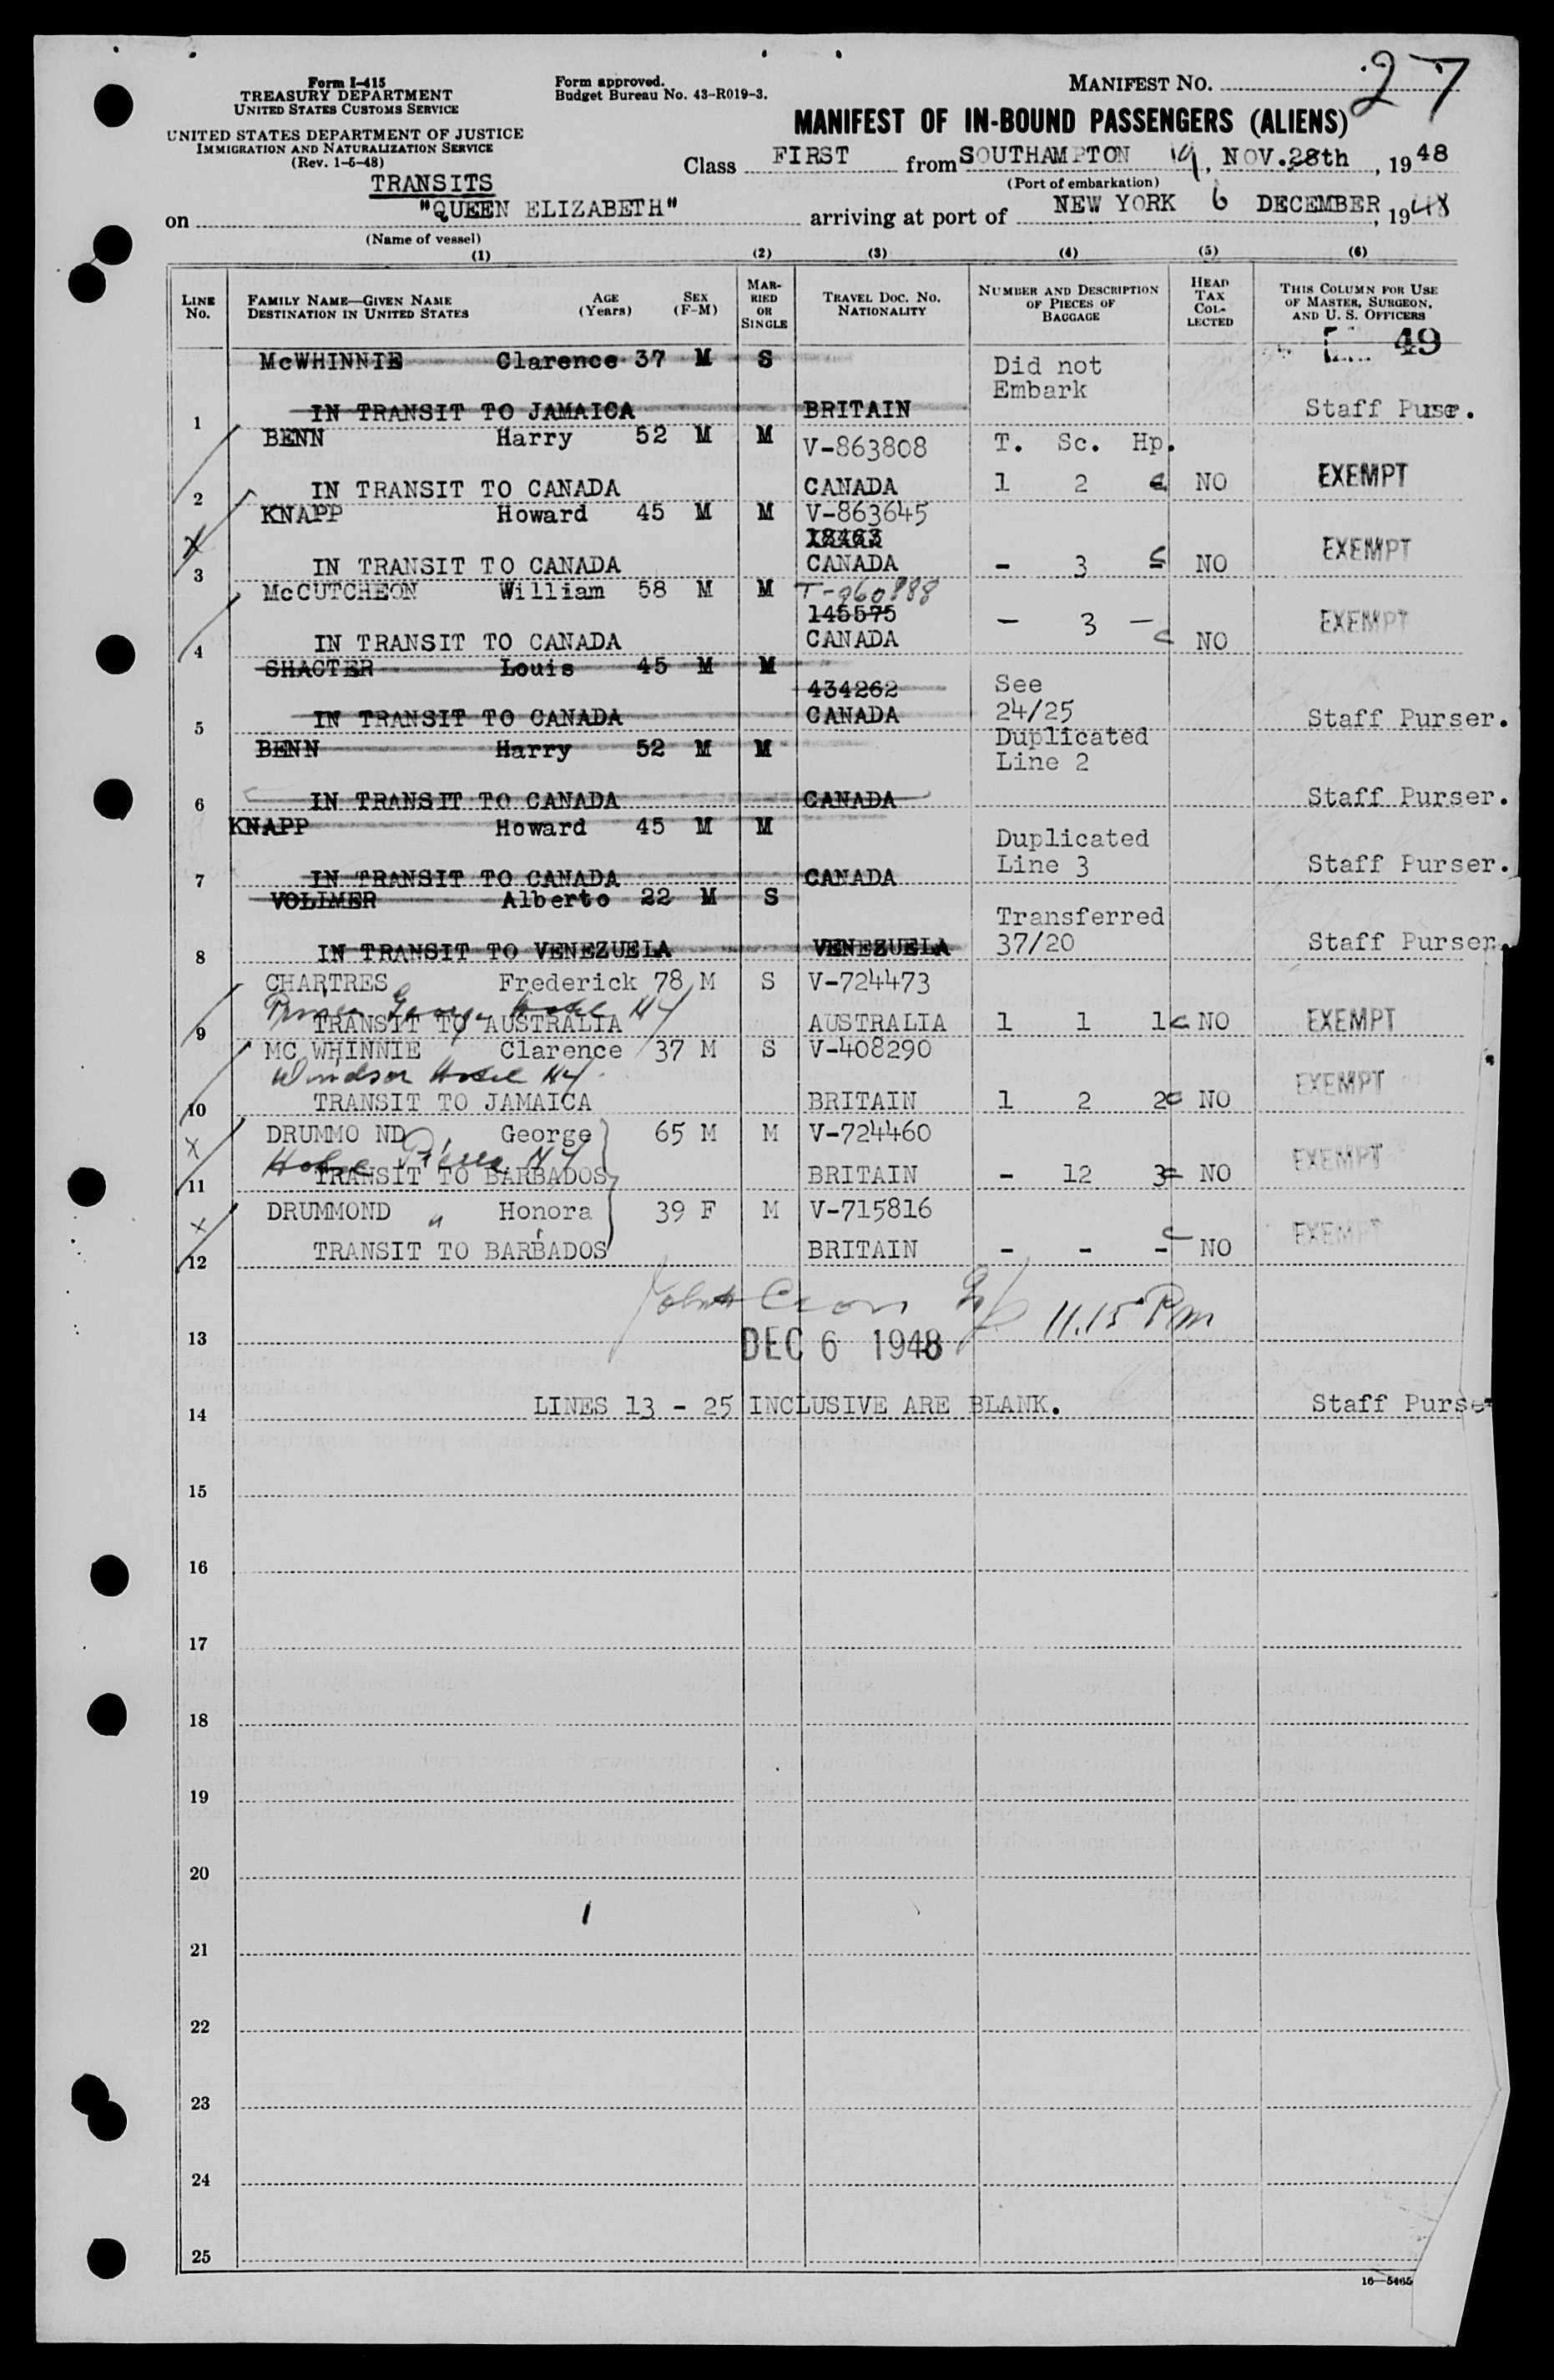 Form I-415
TREASURY DEPARTMENT
UNITED STATES CUSTOMS SERVICE
UNITED STATES DEPARTMENT OF JUSTICE
IMMIGRATION AND NATURALIZATION SERVICE
(Rev. 1-5-48)
Form approved.
Budget Bureau No. 43-R019-3.
MANIFEST NO. 27
MANIFEST OF IN-BOUND PASSENGERS (ALIENS)
Class FIRST from SOUTHAMPTON, NOV. 28th, 1948
(Port of embarkation)
TRANSITS
on "QUEEN ELIZABETH" arriving at port of NEW YORK 6 DECEMBER, 1948
(Name of vessel)
(1) (2) (3) (4) (5) (6)
LINE No. FAMILY NAME—GIVEN NAME DESTINATION IN UNITED STATES AGE (Years) SEX (F-M) MARRIED OR SINGLE TRAVEL DOC. NO. NATIONALITY NUMBER AND DESCRIPTION OF PIECES OF BAGGAGE HEAD TAX COLLECTED THIS COLUMN FOR USE OF MASTER, SURGEON, AND U. S. OFFICERS
49
McWHINNIE Clarence 37 M S Did not Embark
1 IN TRANSIT TO JAMAICA BRITAIN Staff Purser.
BENN Harry 52 M M V-863808 T. Sc. Hp.
2 IN TRANSIT TO CANADA CANADA 1 2 NO EXEMPT
KNAPP Howard 45 M M V-863645
18463
3 IN TRANSIT TO CANADA CANADA - 3 - NO EXEMPT
McCUTCHEON William 58 M M T-960888
145575
4 IN TRANSIT TO CANADA CANADA - 3 - NO EXEMPT
SHACTER Louis 45 M M 434262 See
5 IN TRANSIT TO CANADA CANADA 24/25 Staff Purser.
BENN Harry 52 M M Duplicated Line 2
6 IN TRANSIT TO CANADA CANADA Staff Purser.
KNAPP Howard 45 M M Duplicated
7 IN TRANSIT TO CANADA CANADA Line 3 Staff Purser.
VOLLMER Alberto 22 M S Transferred
8 IN TRANSIT TO VENEZUELA VENEZUELA 37/20 Staff Purser.
CHARTRES Frederick 78 M S V-724473
Prince George Hotel NY
9 TRANSIT TO AUSTRALIA AUSTRALIA 1 1 1 NO EXEMPT
MC WHINNIE Clarence 37 M S V-408290
Windsor Hotel NY.
10 TRANSIT TO JAMAICA BRITAIN 1 2 2 NO EXEMPT
DRUMMO ND, George 65 M M V-724460
Hotel Pierre NY
11 TRANSIT TO BARBADOS BRITAIN - 12 3 NO EXEMPT
DRUMMOND " Honora 39 F M V-715816
12 TRANSIT TO BARBADOS BRITAIN - - - NO EXEMPT
11.15 Pm
13 DEC 6 1948
14 LINES 13 - 25 INCLUSIVE ARE BLANK. Staff Purser
15
16
17
18
19
20
21
22
23
24
25
16—5465